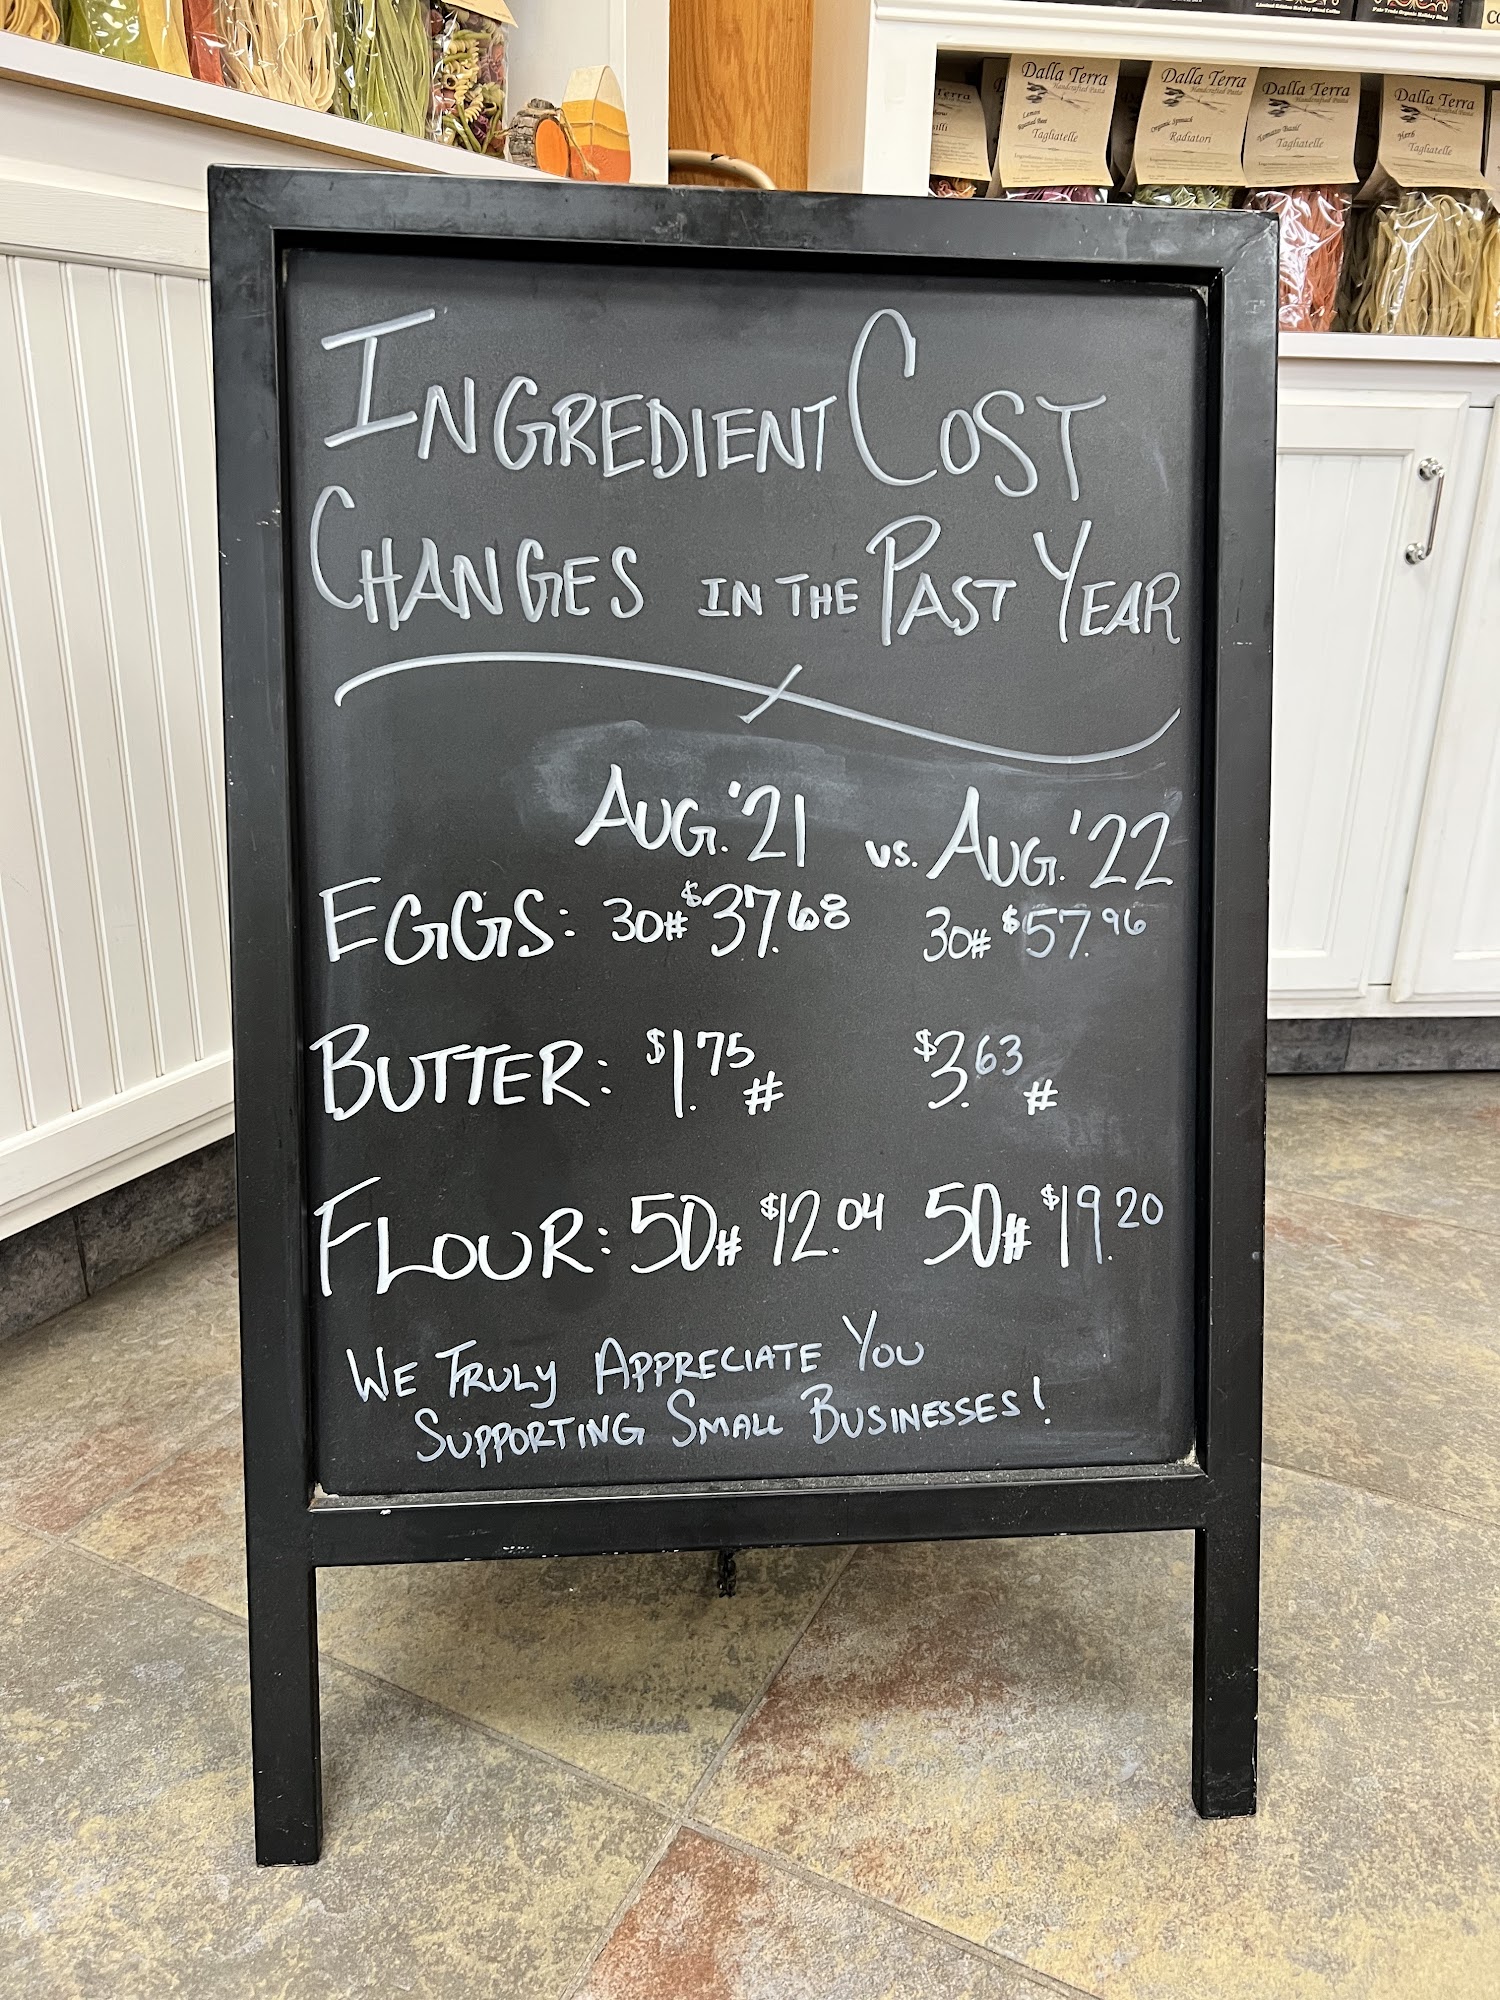 Limited Edition Holiday Blend Coffee
Fair Trade Organic Holiday Blend
Dalla Terra
Handcrafted Pasta
Tagliatelle
Dalla Terra
Handcrafted Pasta
Organic Spinach
Radiatori
Dalla Terra
Handcrafted Pasta
Tomato Basil
Tagliatelle
Dalla Terra
Handcrafted Pasta
Herb
Tagliatelle
INGREDIENT COST
CHANGES IN THE PAST YEAR
AUG. '21 VS. AUG. '22
EGGS: 30# $37.68 30# $57.96
BUTTER: $1.75 # $3.63 #
FLOUR: 50# $12.04 50# $19.20
WE TRULY APPRECIATE YOU
SUPPORTING SMALL BUSINESSES!